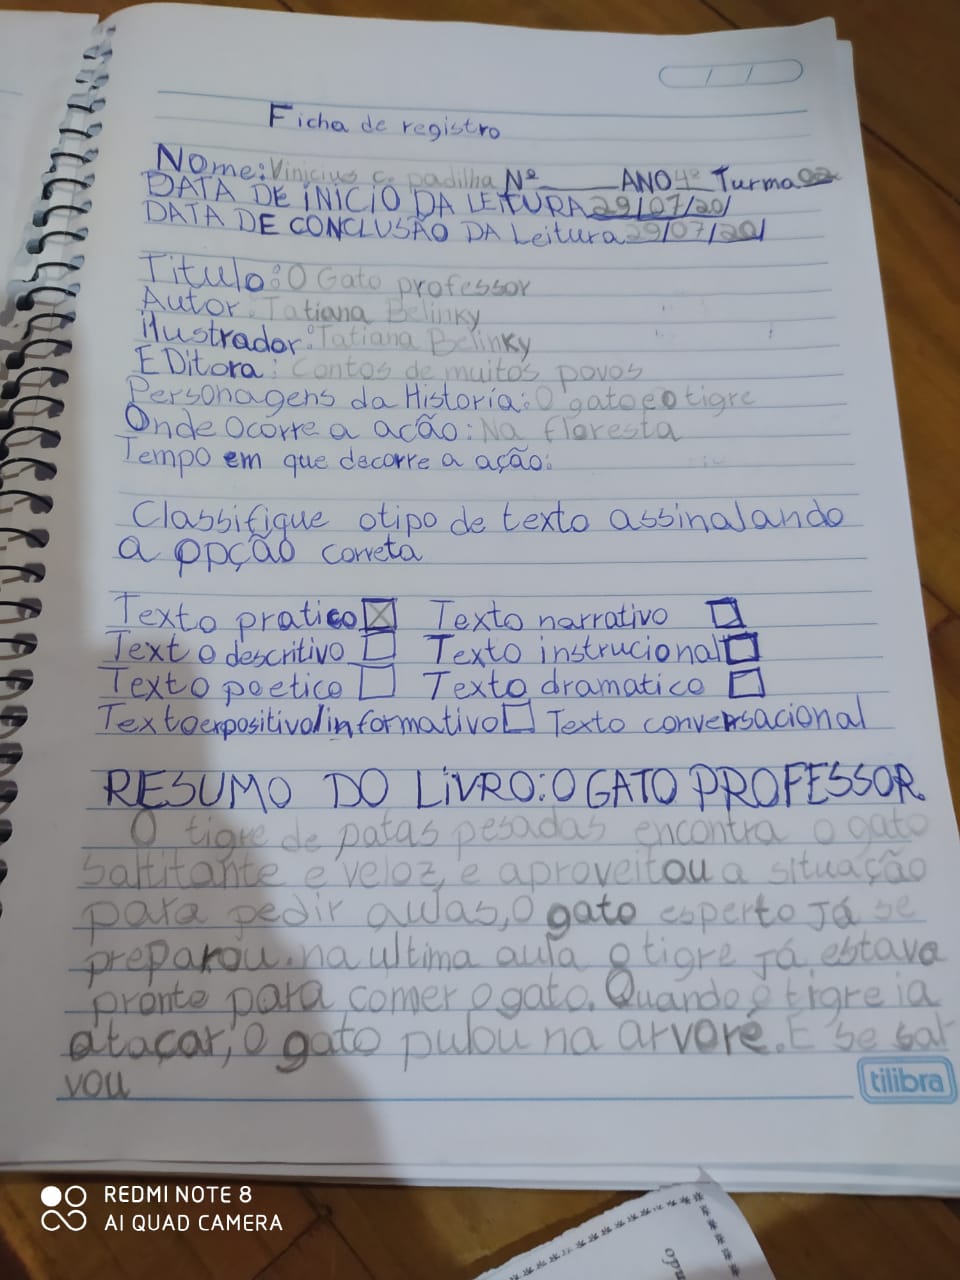 Ficha de registro
Nome: Vinicius C. padilha Nº ANO 4º Turma 02
DATA DE INÍCIO DA LEITURA 29/07/20/
DATA DE CONCLUSÃO DA Leitura 29/07/20/
Titulo: O Gato professor
Autor: Tatiana Belinky
ilustrador: Tatiana Belinky
EDitora: Contos de muitos povos
Personagens da Historia: O gato e o tigre
Onde Ocorre a acão: Na floresta
Tempo em que decorre a ação:
Classifique otipo de texto assinalando
a opção correta
Texto pratico Texto narrativo
Texto descritivo Texto instrucional
Texto poetico Texto dramatico
Texto expositivo/informativo Texto conversacional
RESUMO DO LIVRO: O GATO PROFESSOR
O tigre de patas pesadas encontra o gato
saltitante e veloz, e aproveitou a situação
para pedir aulas, O gato esperto já se
preparou. na ultima aula o tigre já estava
pronto para comer o gato. Quando o tigre ia
atacar, o gato pulou na arvoré. E se sal
vou
tilibra
REDMI NOTE 8
AI QUAD CAMERA